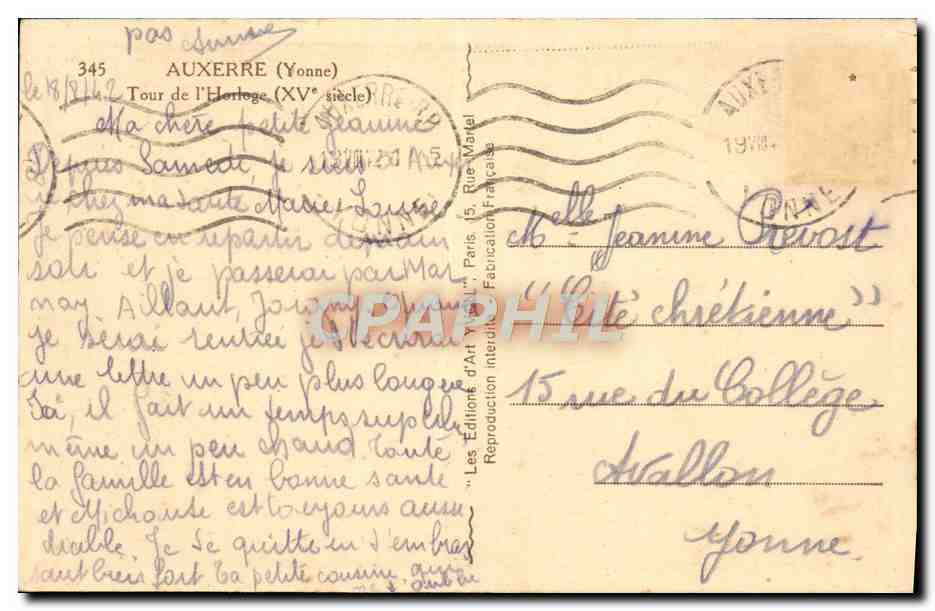 pas
345 AUXERRE (Yonne)
le 18/8/42
Tour de l'Horloge (XVe siècle)
Ma chère petite Jeanine
Depuis Samedi, je suis à
chez ma tante Marie-Louise
Je pense en repartir demain
soir et je passerai par Mar
nay Aillant,
je serai rentrée je t'écrirai
une lettre un peu plus longue
Ici, il fait un temps superbe
même un peu chaud. Toute
la famille est en bonne santé
et est toujours aussi
diable. Je te quitte en t'embras
sant bien fort ta petite cousine qui
ne t'oublie
"Les Editions d'Art YVON", Paris, 15, Rue Martel
Reproduction interdite Fabrication Française
AUXERRE
YONNE
AUXE
19 VIII
YONNE
*
Melle Jeanine Prévost
"Cité chrétienne"
15 rue du Collège
Avallon
Yonne.
CPAPHIL